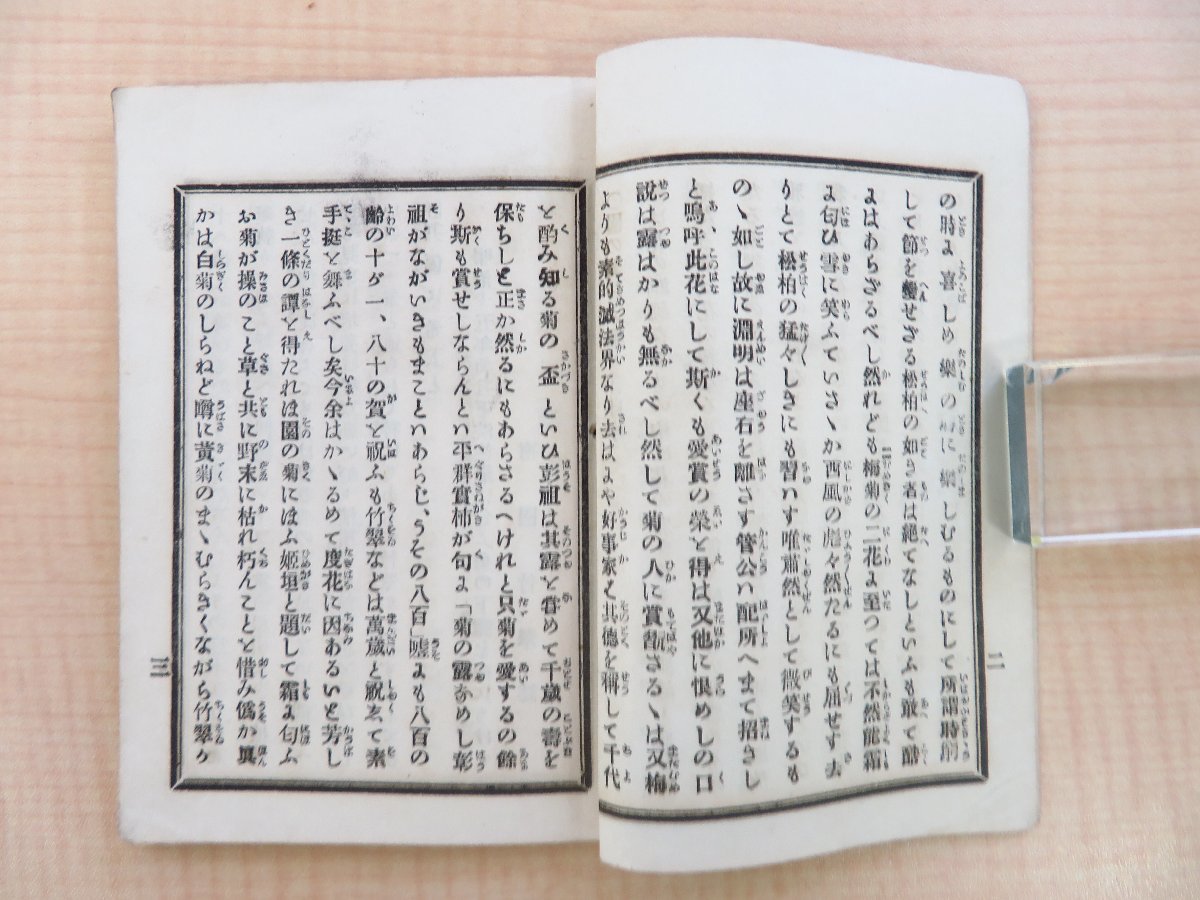 の時に喜しめ樂の時に樂しむるものにして所謂時節
して節を變せざる松柏の如き者は絶てなしといふも敢て酷
にはあらざるべし然れども梅菊の二花に至つては不然能霜
に匂ひ雪に笑ふていさゝか西風の彪々然たるにも屈せす去
りとて松柏の猛々しきにも習ハす唯肅然として微笑するも
のゝ如し故に淵明は座右を離さす管公ハ配所へまて招きし
と嗚呼此花にして斯くも愛賞の榮を得は又他に恨めしの口
説は露はかりも無るべし然して菊の人に賞翫さるゝは又梅
よりも素的滅法界なり去はよや好事家を其徳を稱して千代
二
と酌み知る菊の盃といひ彭祖は其露を甞めて千歳の壽を
保ちしと正か然るにもあらさるへけれと只菊を愛するの餘
り斯も賞せしならんとハ平群實柿が句に「菊の露なめし彭
祖がながいきもまことハあらじ、うその八百」嘘にも八百の
齡の十が一、八十の賀を祝ふも竹翠などは萬歳と祝ゑて素
手挺を舞ふべし矣今余はかゝるめて度花に因あるいと芳し
き一條の譚を得たれは園の菊にほふ姫垣と題して霜に匂ふ
お菊が操のこと草と共に野末に枯れ朽んことを惜み僞か眞
かは白菊のしらねど噂に黄菊のまゝむらきくながら竹翠が
三